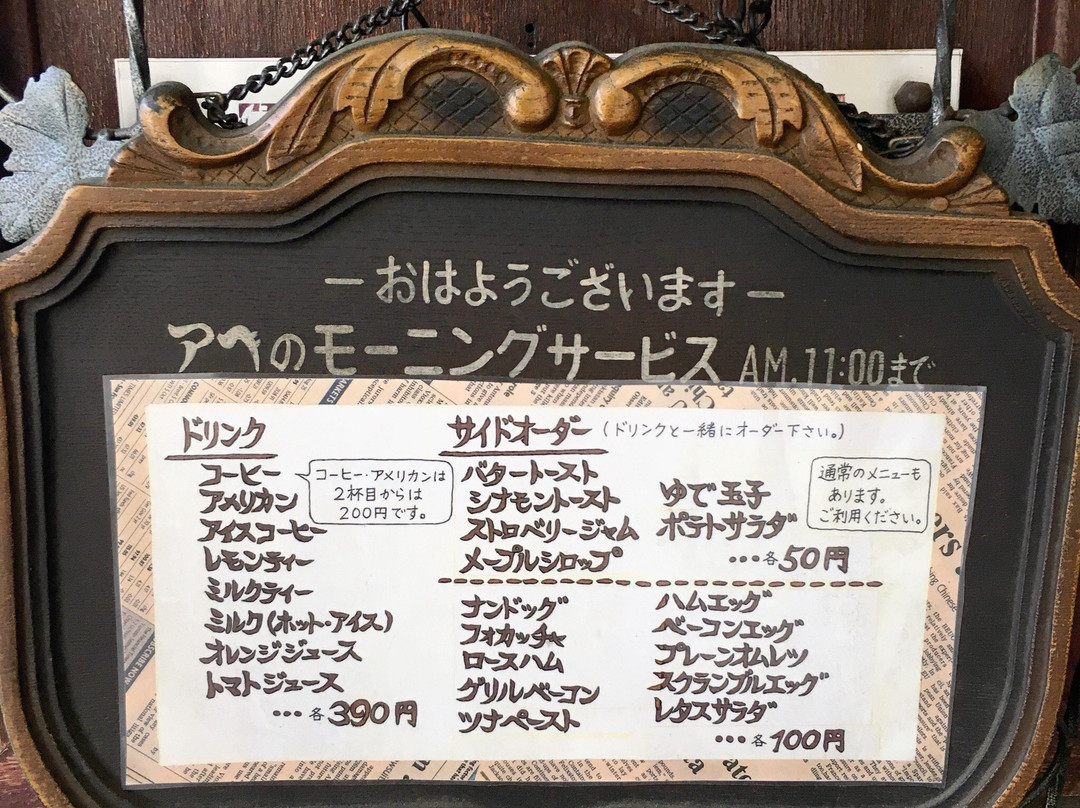 －おはようございます－
アペのモーニングサービス AM.11:00まで
ドリンク
コーヒー
アメリカン
アイスコーヒー
レモンティー
ミルクティー
ミルク(ホット・アイス)
オレンジジュース
トマトジュース
…各390円
コーヒー・アメリカンは
2杯目からは
200円です。
サイドオーダー(ドリンクと一緒にオーダー下さい。)
バタートースト
シナモントースト
ストロベリージャム
メープルシロップ
ゆで玉子
ポテトサラダ
…各50円
通常のメニューも
あります。
ご利用ください。
ナンドッグ
フォカッチャ
ロースハム
グリルベーコン
ツナペースト
ハムエッグ
ベーコンエッグ
プレーンオムレツ
スクランブルエッグ
レタスサラダ
…各100円